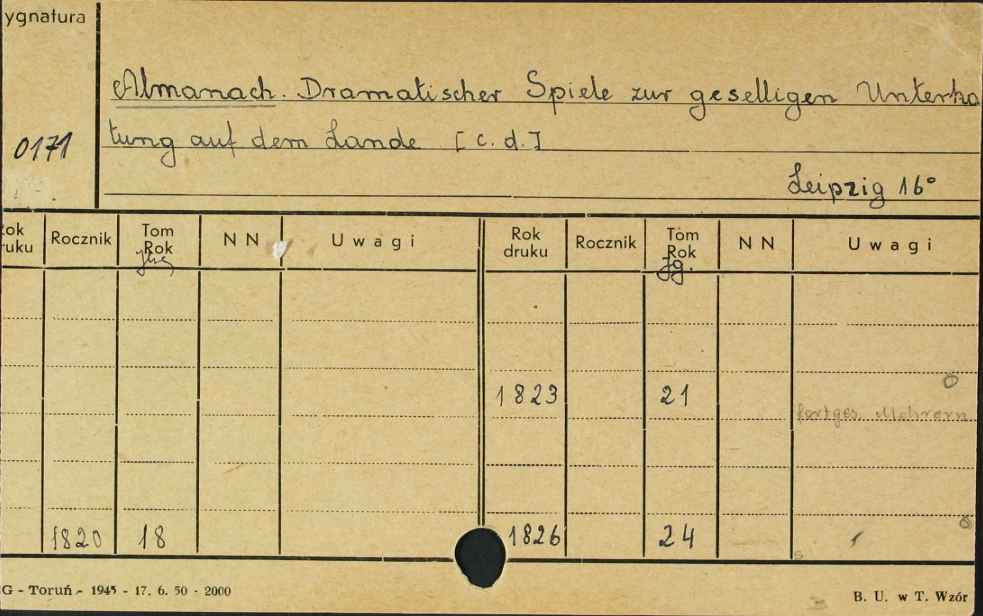 ygnatura
Almanach. Dramatischer Spiele zur geselligen Unterha
0171 tung auf dem Lande [c. d.]
Leipzig 16°
Rok druku Rocznik Tom Rok NN Uwagi Rok druku Rocznik Tom Rok NN Uwagi
Jg.
1823 21
fortges.
1820 18 1826 24
G - Toruń - 1945 - 17. 6. 50 - 2000 B. U. w T. Wzór